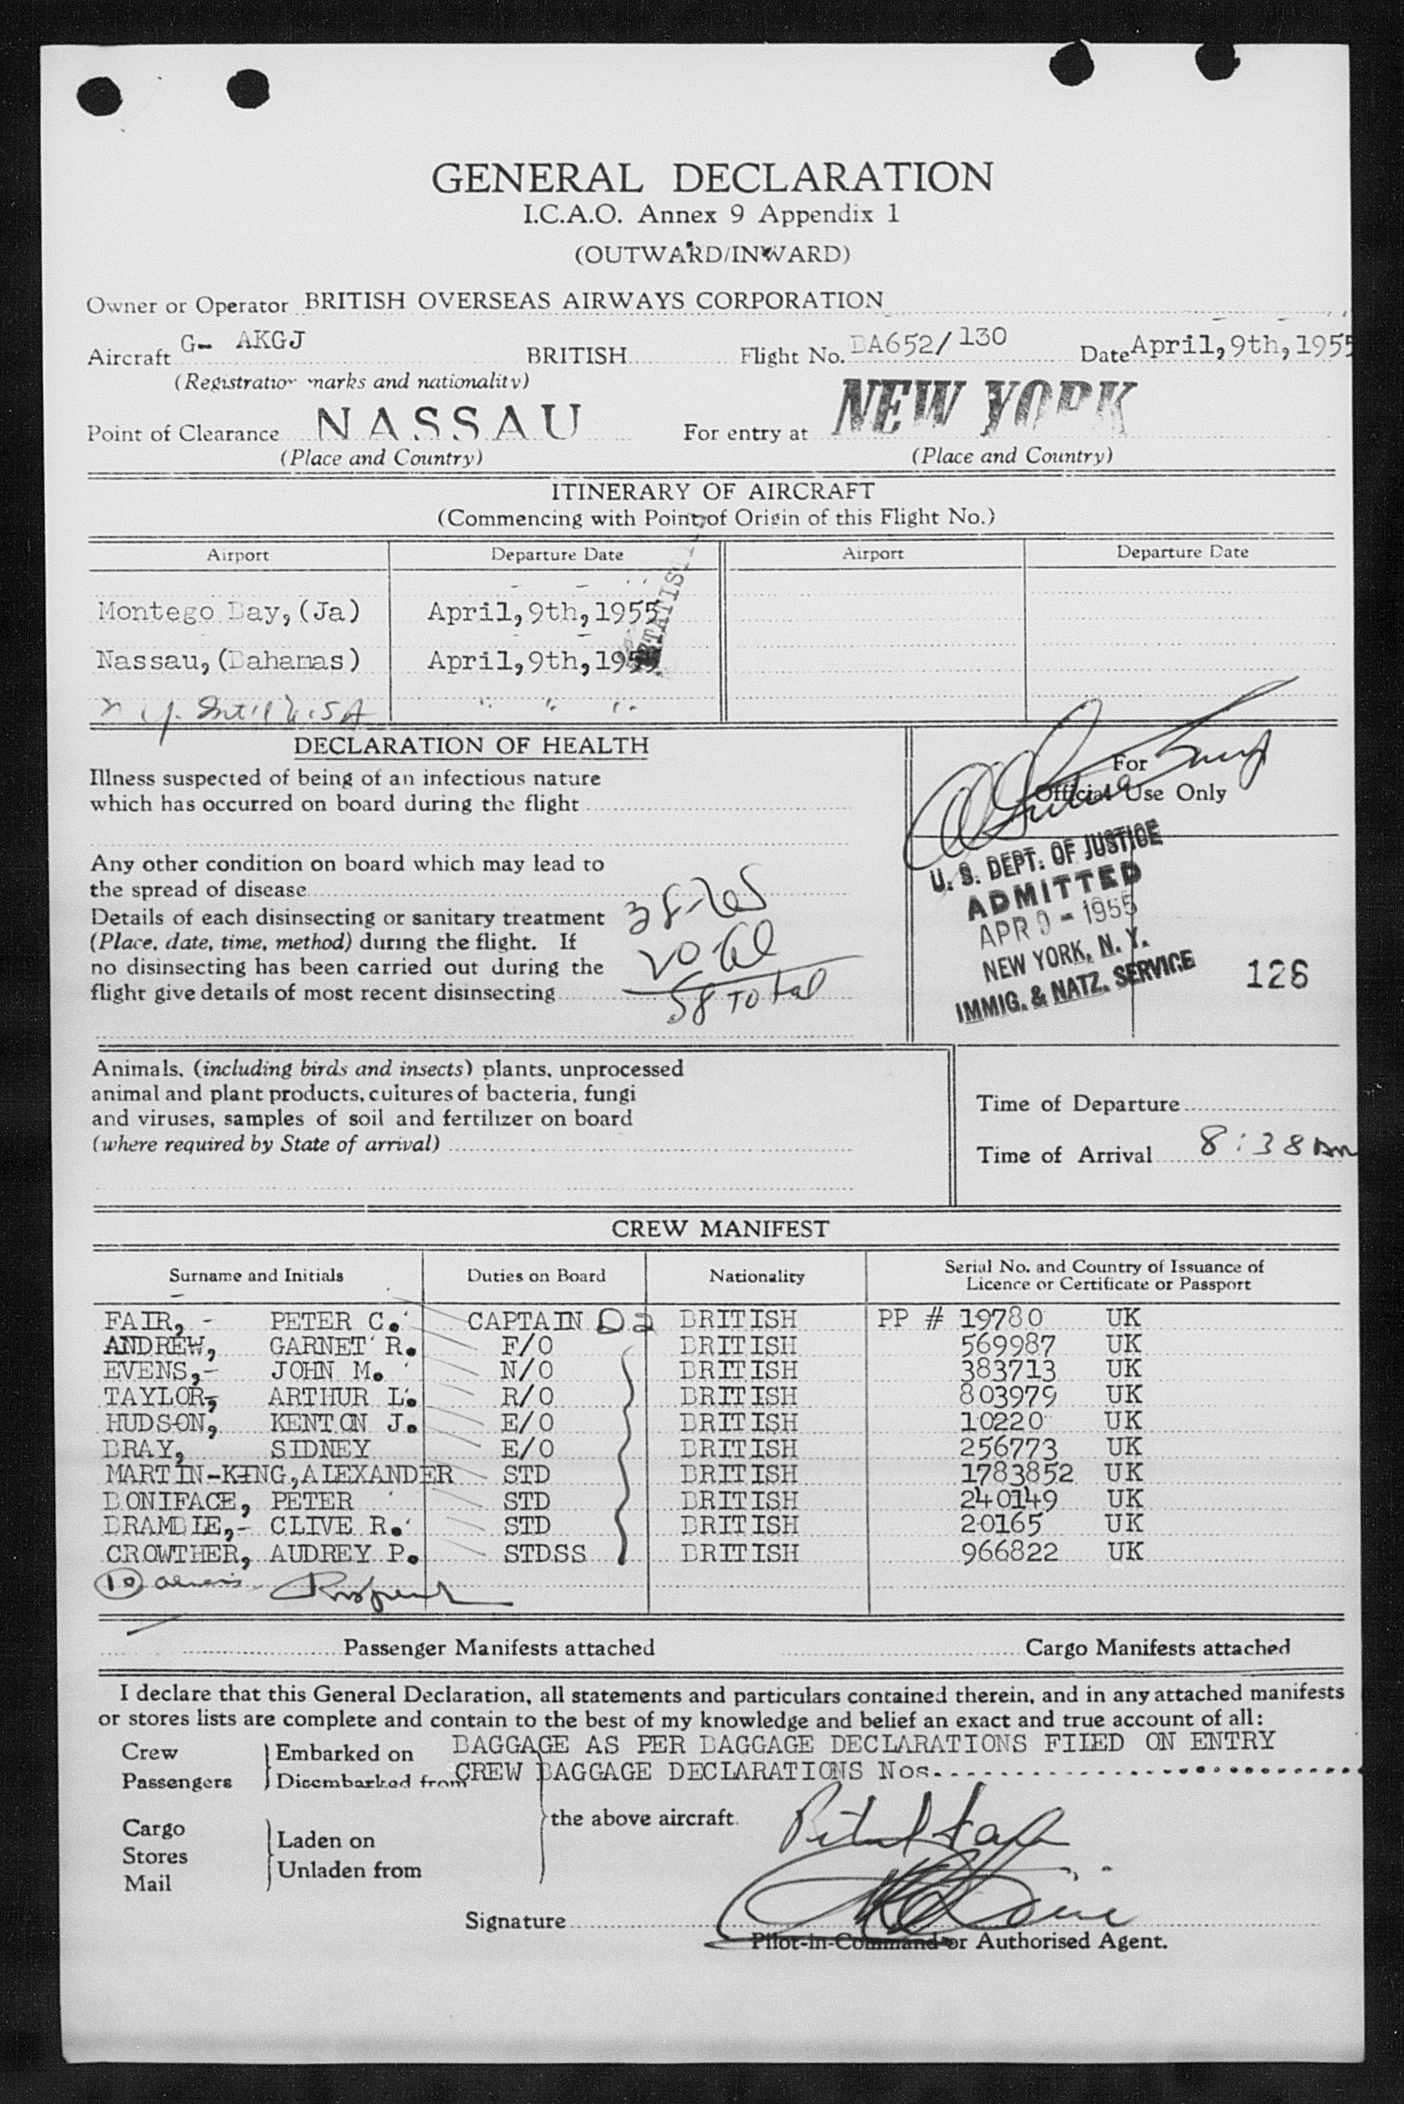 GENERAL DECLARATION
I.C.A.O. Annex 9 Appendix 1
(OUTWARD/INWARD)
Owner or Operator BRITISH OVERSEAS AIRWAYS CORPORATION
Aircraft G- AKGJ BRITISH Flight No. BA652/130 Date April,9th,1955
(Registration marks and nationality)
Point of Clearance NASSAU For entry at NEW YORK
(Place and Country) (Place and Country)
ITINERARY OF AIRCRAFT
(Commencing with Point of Origin of this Flight No.)
Airport Departure Date Airport Departure Date
Montego Bay,(Ja) April,9th,1955
Nassau,(Bahamas) April,9th,1955
N.Y. Intl U.S.A " " "
DECLARATION OF HEALTH
Illness suspected of being of an infectious nature
which has occurred on board during the flight
For
Official Use Only
Any other condition on board which may lead to
the spread of disease
Details of each disinsecting or sanitary treatment
(Place, date, time, method) during the flight. If
no disinsecting has been carried out during the
flight give details of most recent disinsecting
38
20
58 Total
U. S. DEPT. OF JUSTICE
ADMITTED
APR 9 - 1955
NEW YORK, N. Y.
IMMIG. & NATZ. SERVICE
126
Animals, (including birds and insects) plants, unprocessed
animal and plant products, cultures of bacteria, fungi
and viruses, samples of soil and fertilizer on board
(where required by State of arrival)
Time of Departure
Time of Arrival 8:38 am
CREW MANIFEST
Surname and Initials Duties on Board Nationality Serial No. and Country of Issuance of Licence or Certificate or Passport
FAIR, - PETER C. CAPTAIN D2 BRITISH PP # 19780 UK
ANDREW, GARNET R. F/O BRITISH 569987 UK
EVENS,- JOHN M. N/O BRITISH 383713 UK
TAYLOR, ARTHUR L. R/O BRITISH 803979 UK
HUDSON, KENTON J. E/O BRITISH 10220 UK
BRAY, SIDNEY E/O BRITISH 256773 UK
MARTIN-KING,ALEXANDER STD BRITISH 1783852 UK
BONIFACE, PETER STD BRITISH 240149 UK
BRAMBLE,- CLIVE R. STD BRITISH 20165 UK
CROWTHER, AUDREY P. STDSS BRITISH 966822 UK
10 aliens
Passenger Manifests attached Cargo Manifests attached
I declare that this General Declaration, all statements and particulars contained therein, and in any attached manifests
or stores lists are complete and contain to the best of my knowledge and belief an exact and true account of all:
BAGGAGE AS PER BAGGAGE DECLARATIONS FILED ON ENTRY
Crew Embarked on
CREW BAGGAGE DECLARATIONS Nos.
Passengers Disembarked from
the above aircraft.
Cargo
Stores
Mail
Laden on
Unladen from
Signature
Pilot-in-Command or Authorised Agent.